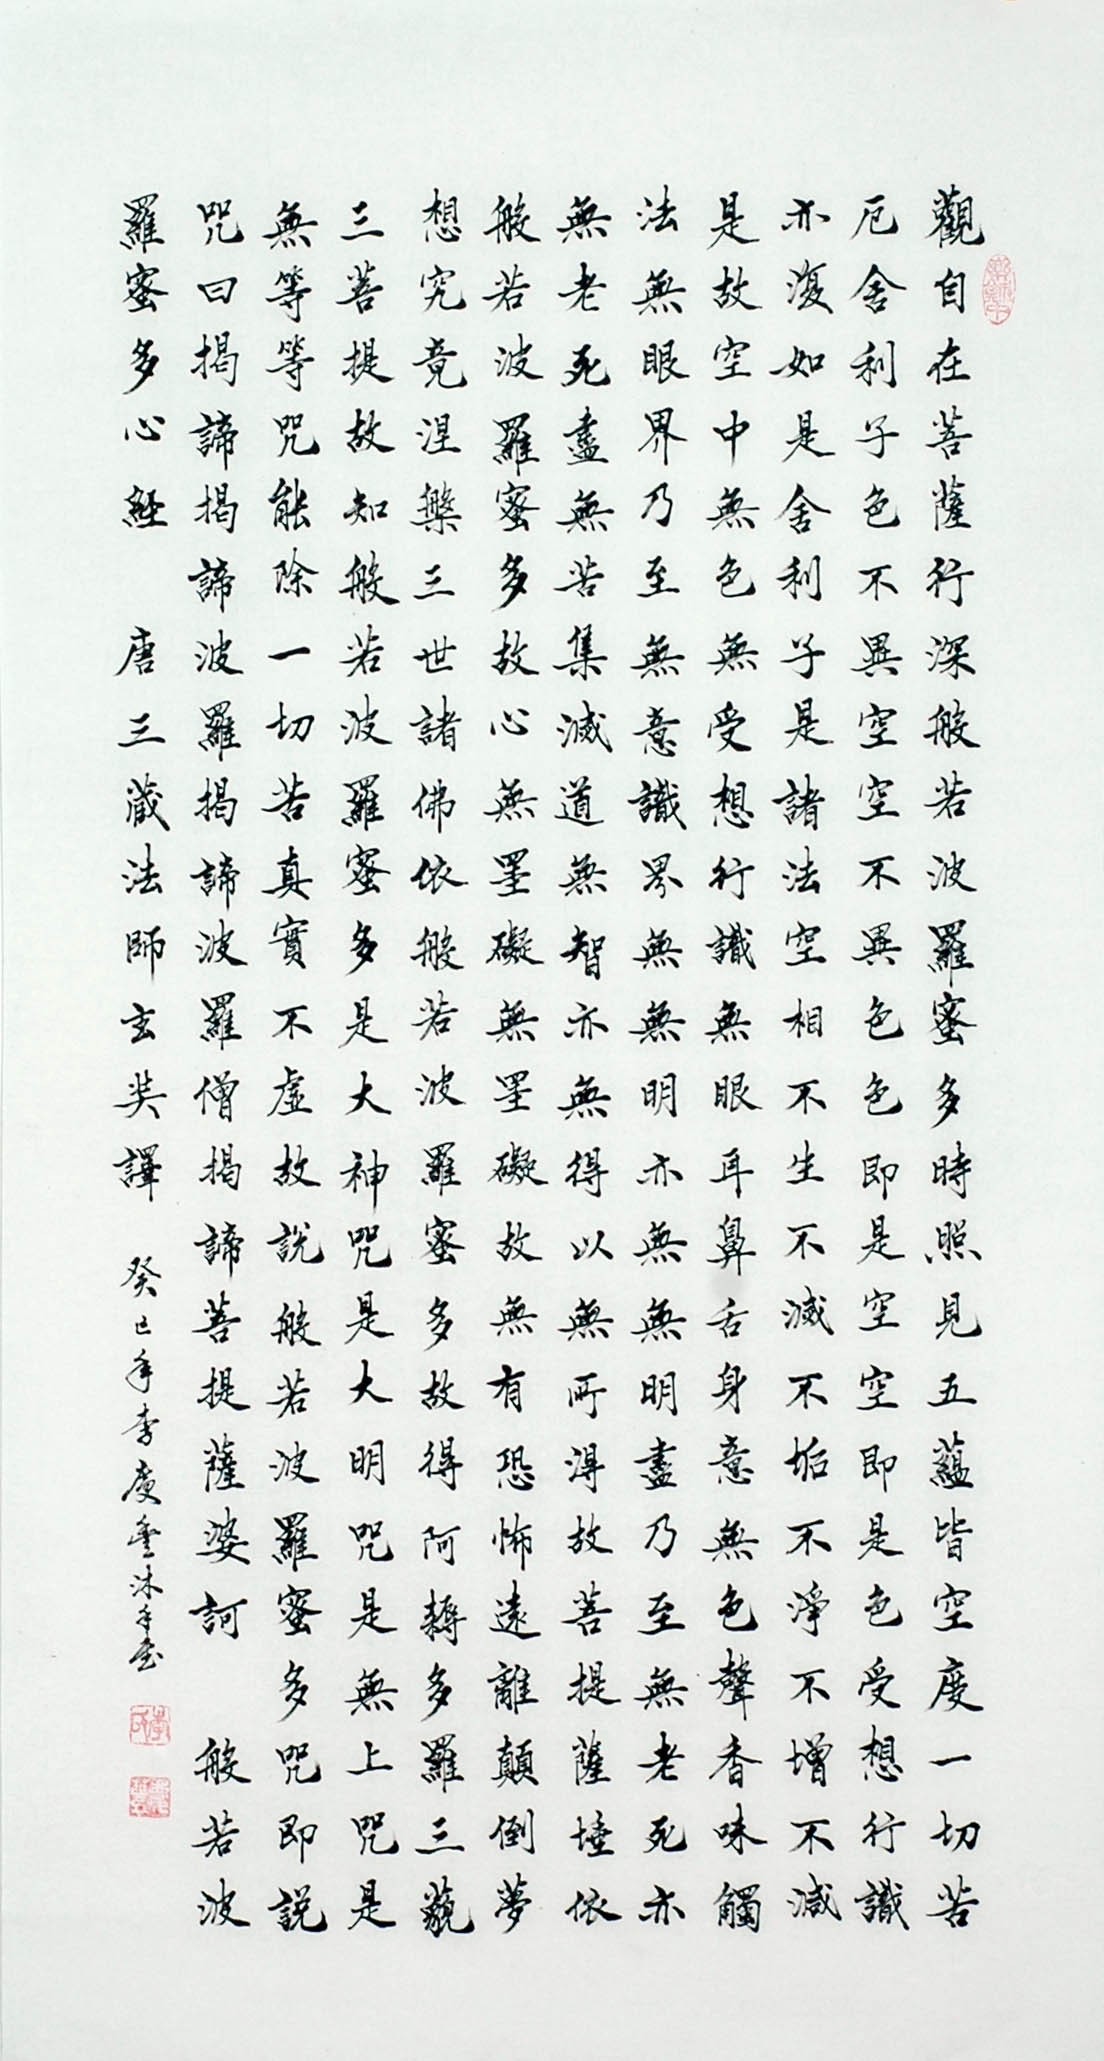 觀自在菩薩行深般若波羅蜜多時照見五蘊皆空度一切苦
厄舍利子色不異空空不異色色即是空空即是色受想行識
亦復如是舍利子是諸法空相不生不滅不垢不淨不增不減
是故空中無色無受想行識無眼耳鼻舌身意無色聲香味觸
法無眼界乃至無意識界無無明亦無無明盡乃至無老死亦
無老死盡無苦集滅道無智亦無得以無所得故菩提薩埵依
般若波羅蜜多故心無罣礙無罣礙故無有恐怖遠離顛倒夢
想究竟涅槃三世諸佛依般若波羅蜜多故得阿耨多羅三藐
三菩提故知般若波羅蜜多是大神咒是大明咒是無上咒是
無等等咒能除一切苦真實不虛故說般若波羅蜜多咒即說
咒曰揭諦揭諦波羅揭諦波羅僧揭諦菩提薩婆訶 般若波
羅蜜多心経 唐三藏法師玄奘譯 癸巳年李慶豐沐手書